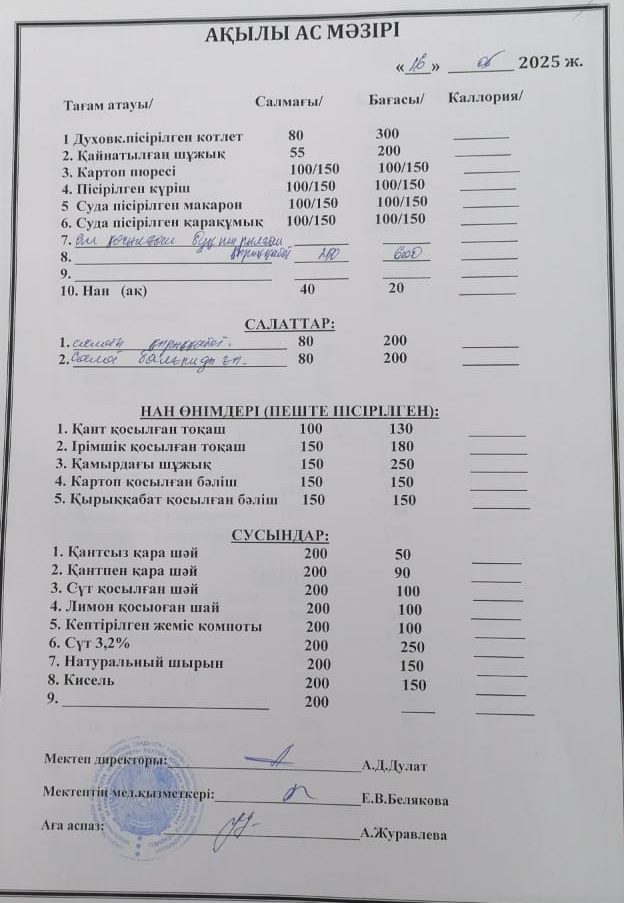 АҚЫЛЫ АС МӘЗІРІ
«16» 05 2025 ж.
Тағам атауы/ Салмағы/ Бағасы/ Каллория/
1 Духовк.пісірілген котлет 80 300
2. Қайнатылған шұжық 55 200
3. Картоп пюресі 100/150 100/150
4. Пісірілген күріш 100/150 100/150
5 Суда пісірілген макарон 100/150 100/150
6. Суда пісірілген қарақұмық 100/150 100/150
7.
8. 600
9.
10. Нан (ақ) 40 20
САЛАТТАР:
1. 80 200
2. 80 200
НАН ӨНІМДЕРІ (ПЕШТЕ ПІСІРІЛГЕН):
1. Қант қосылған тоқаш 100 130
2. Ірімшік қосылған тоқаш 150 180
3. Қамырдағы шұжық 150 250
4. Картоп қосылған бәліш 150 150
5. Қырыққабат қосылған бәліш 150 150
СУСЫНДАР:
1. Қантсыз қара шәй 200 50
2. Қантпен қара шәй 200 90
3. Сүт қосылған шәй 200 100
4. Лимон қосыоған шай 200 100
5. Кептірілген жеміс компоты 200 100
6. Сүт 3,2% 200 250
7. Натуральный шырын 200 150
8. Кисель 200 150
9. 200
Мектеп директоры: А.Д.Дулат
Мектептің мед.қызметкері: Е.В.Белякова
Аға аспаз: А.Журавлева